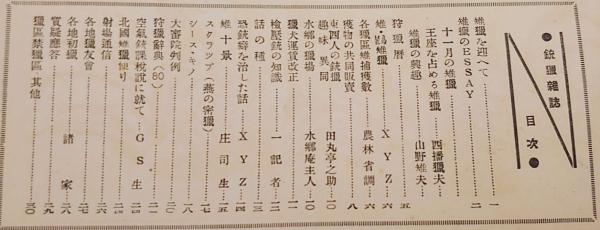 ●銃獵雜誌
目次●
雉獵を迎へて……一
雉獵のESSAY……二
十一月の雉獵
王座を占める雉獵……西播獵夫
雉獵の興趣……山野雄夫
狩獵曆……五
雉・鳩雉獵……XYZ…六
各獵區雉捕獲數……農林省調…六
獲物の共同販賣……八
東西四人の銃獵
趣味異同……田丸亭之助…一〇
水鄕の獵場……水鄕庵主人…一〇
獵犬運賃改正……一一
檢壓銃の知識……一記者…一二
話の種……一三
恐銃癖を治した話……XYZ…一四
雉十景……庄司生…一五
スクラツプ(燕の密獵)……一七
シース・キノ……一八
大審院判例……二〇
狩獵辭典(80)……二一
空氣銃課稅說に就て……GS生…二四
北國雉獵便り……二四
射場通信……二六
各地獵友會……二七
各地初獵……諸家…二八
質疑應答……二九
獵區禁獵區 其他……三〇